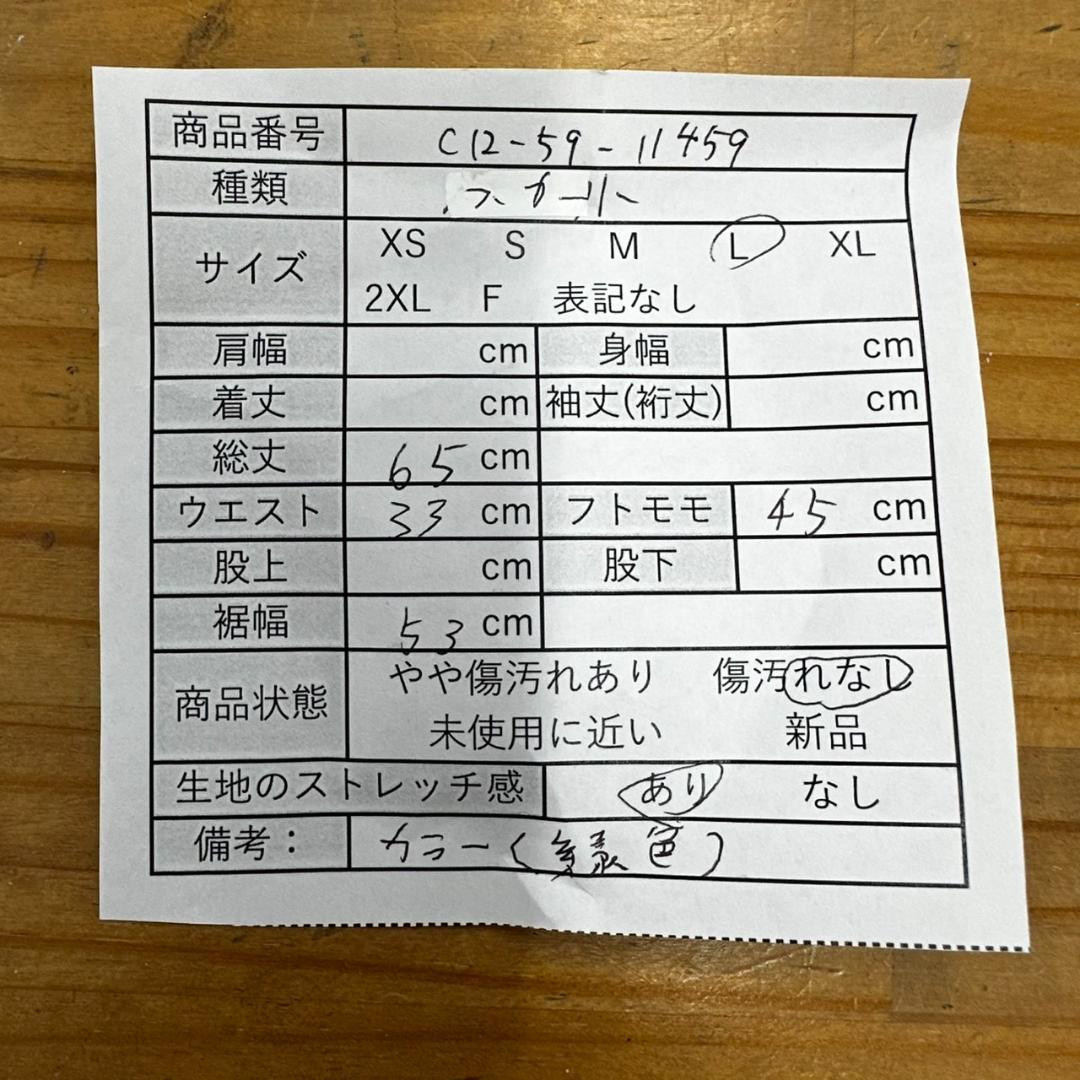 商品番号 C12-59-11459
種類 スカート
サイズ XS S M L XL
2XL F 表記なし
肩幅 cm 身幅 cm
着丈 cm 袖丈(裄丈) cm
総丈 65 cm
ウエスト 33 cm フトモモ 45 cm
股上 cm 股下 cm
裾幅 53 cm
商品状態 やや傷汚れあり 傷汚れなし
未使用に近い 新品
生地のストレッチ感 あり なし
備考： カラー(緑色)